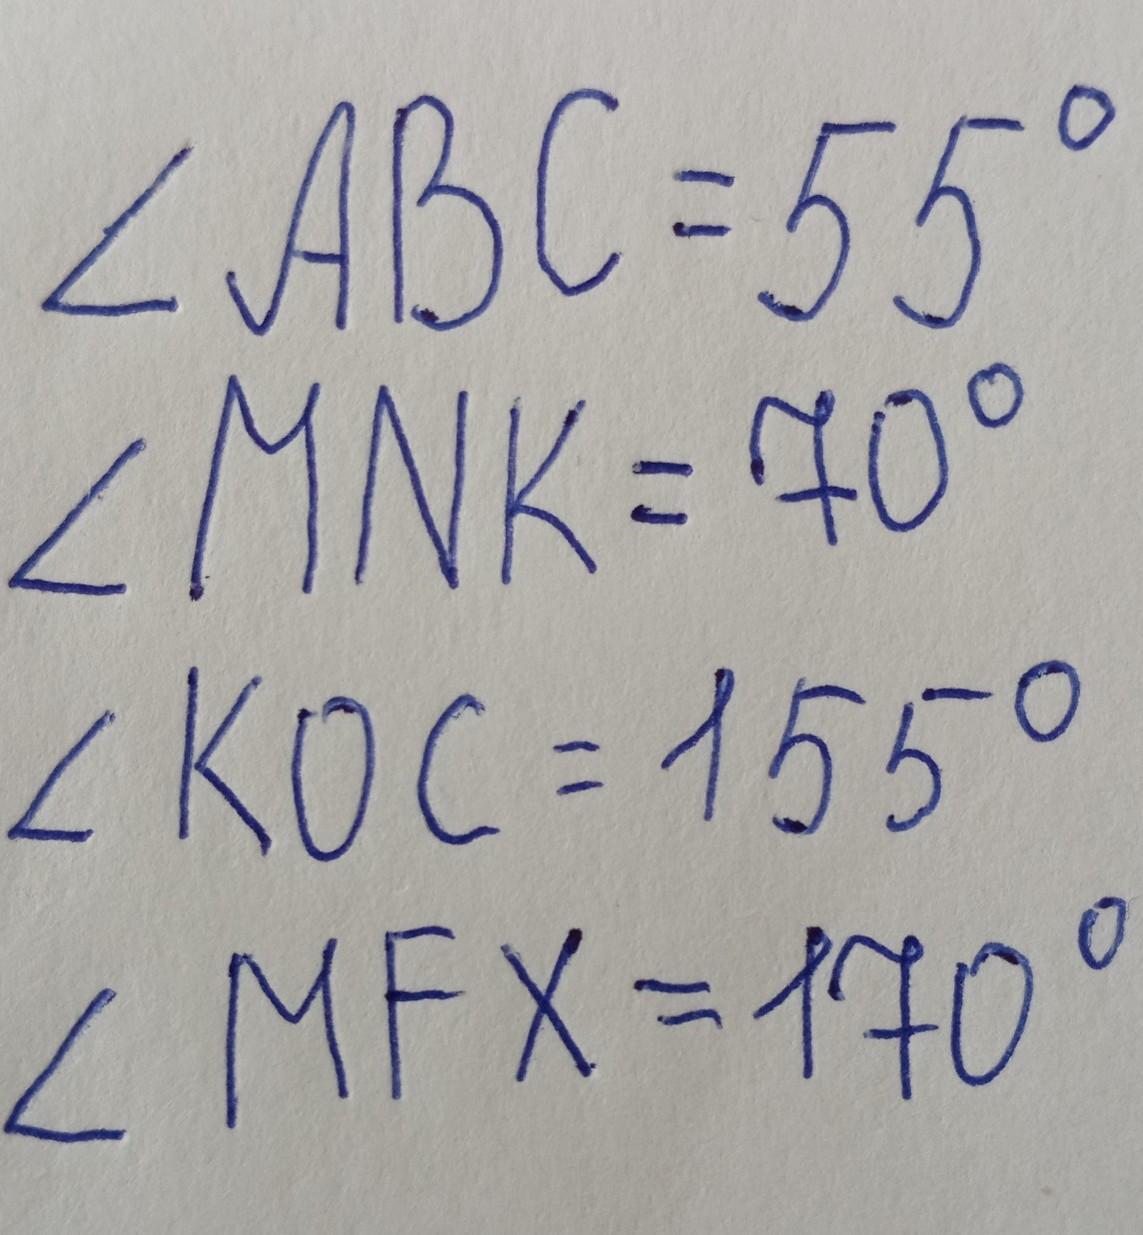 ∠ABC=55°
∠MNK=70°
∠KOC=155°
∠MFX=170°